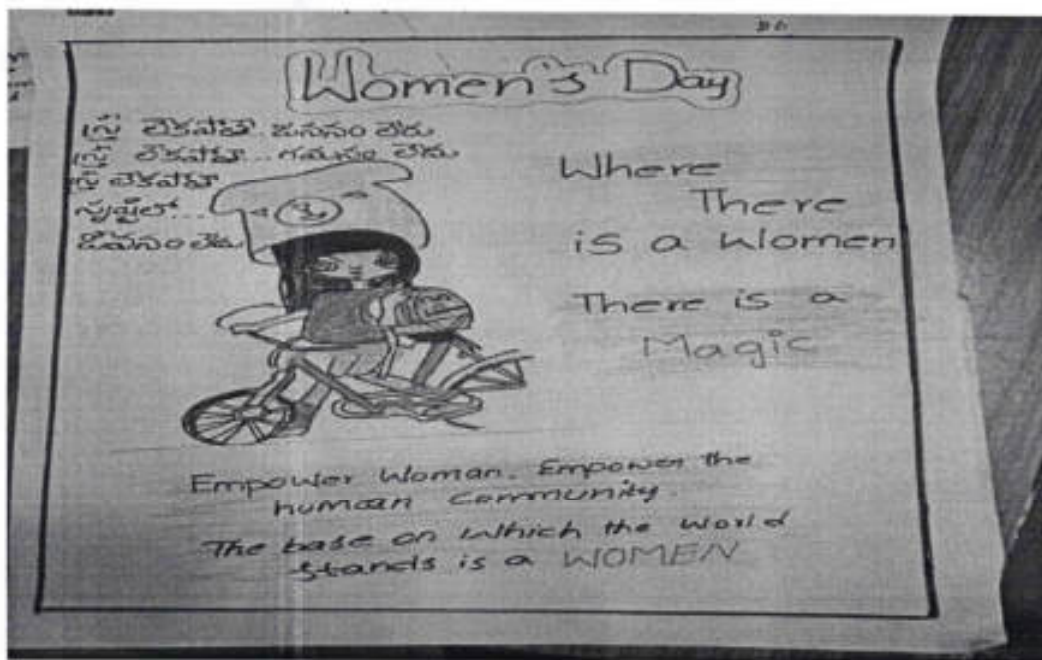 Women's Day
స్త్రీ లేకపోతే జననం లేదు
స్త్రీ లేకపోతే... గమనం లేదు
స్త్రీ లేకపోతే
సృష్టిలో...
జీవనం లేదు
Where
There
is a Women
There is a
Magic
Empower Woman. Empower the
human Community.
The base on Which the World
Stands is a WOMEN